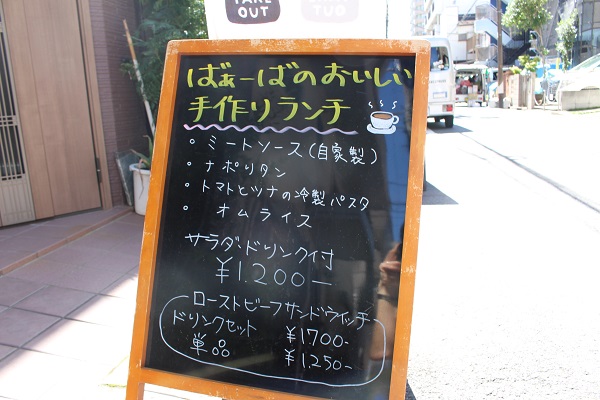 TAKE
OUT
TUO
ばぁーばのおいしい
手作りランチ
・ミートソース(自家製)
・ナポリタン
・トマトとツナの冷製パスタ
・オムライス
サラダ・ドリンク付
¥1.200-
ローストビーフサンドウィッチ
ドリンクセット ¥1700-
単品 ¥1.250-